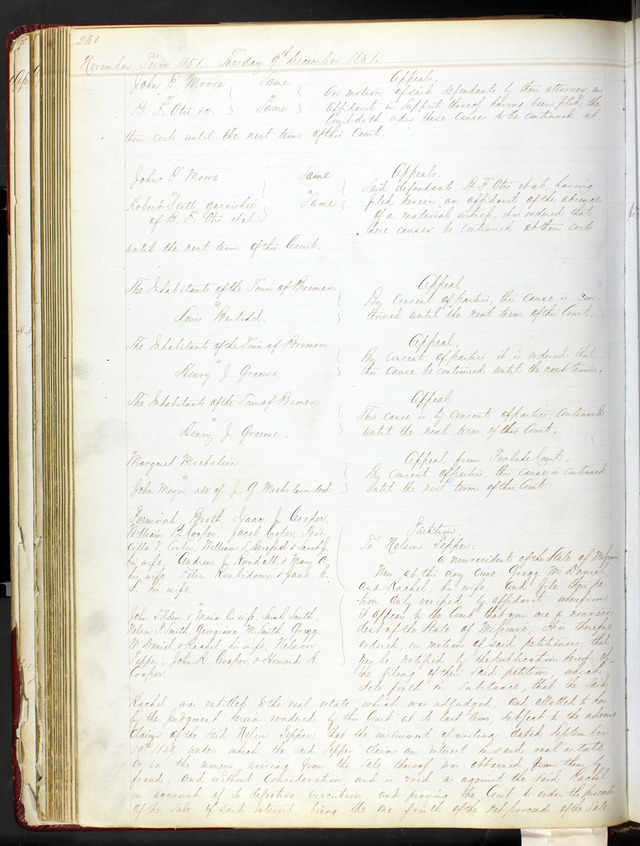 260
November Term 1851. Tuesday 9th December 1851.
John E Moore } Same } Appeals.
vs
B. F. Otis &c. } Same } On motion of said defendants by their attorney, an
affidavit in support thereof having been filed, the
Court doth order these causes to be continued at
their costs until the next term of this Court.
John E Moore } Same } Appeals.
vs
Robert Scott garnishee } Same } Said defendants B. F. Otis et al. having
of B. F. Otis et al. filed herein an affidavit of the absence
of a material witness, it is ordered that
these causes be continued at their costs
until the next term of this Court.
The Inhabitants of the Town of Bremen } Appeal,
vs
Louis } By consent of parties, this cause is con-
tinued until the next term of this Court.
The Inhabitants of the Town of Bremen } Appeal,
vs
Henry J. Graewe. } By consent of parties it is ordered that
this cause be continued until the next term.
The Inhabitants of the Town of Bremen } Appeal
vs
Henry J Graewe. } This cause is by consent of parties, continued
until the next term of this Court.
Margaret } Appeal from Probate Court.
vs
John Meyer, adr of J. G. decd } By consent of parties, this cause is continued
until the next term of this Court
Isaac J. Cooper,
William Cooper, Jacob Cooper, Pris-
cilla T. Cooper, William &
his wife, Andrew J. & Mary A.
his wife, Peter & Jane E.
his wife.
vs
John & Maria his wife, Sarah Smith,
Helen Smith, Georgiana M. Smith, Gregg
McDaniel & Rachel his wife, Nelson
Pepper, John H. Cooper, & Howard H.
Cooper.
Partition
To Nelson Pepper:
a nonresident of the State of Missouri
Now at this day come Gregg McDaniel
and Rachel his wife, and file their peti-
tion duly verified by affidavit, whereupon
it appears to the Court that you are a nonresi-
dent of the State of Missouri. It is therefore
ordered, on motion of said petitioners, that
you be notified by the publication hereof of
the filing of their said petition, which
sets forth in substance, that the said
Rachel was entitled to the real estate, which was adjudged, and allotted to her
by the judgment herein rendered by this Court at its last term, subject to the adverse
claims of the said Nelson Pepper; that the instrument of writing dated September
19th under which the said Pepper claims an interest in said real estate
or in the moneys arising from the sale thereof was obtained from them by
fraud, and without consideration, and is void as against the said Rachel
on account of its defective execution, and praying the Court to order the proceeds
of the sale of said interest, being the one fourth of the net proceeds of the sale